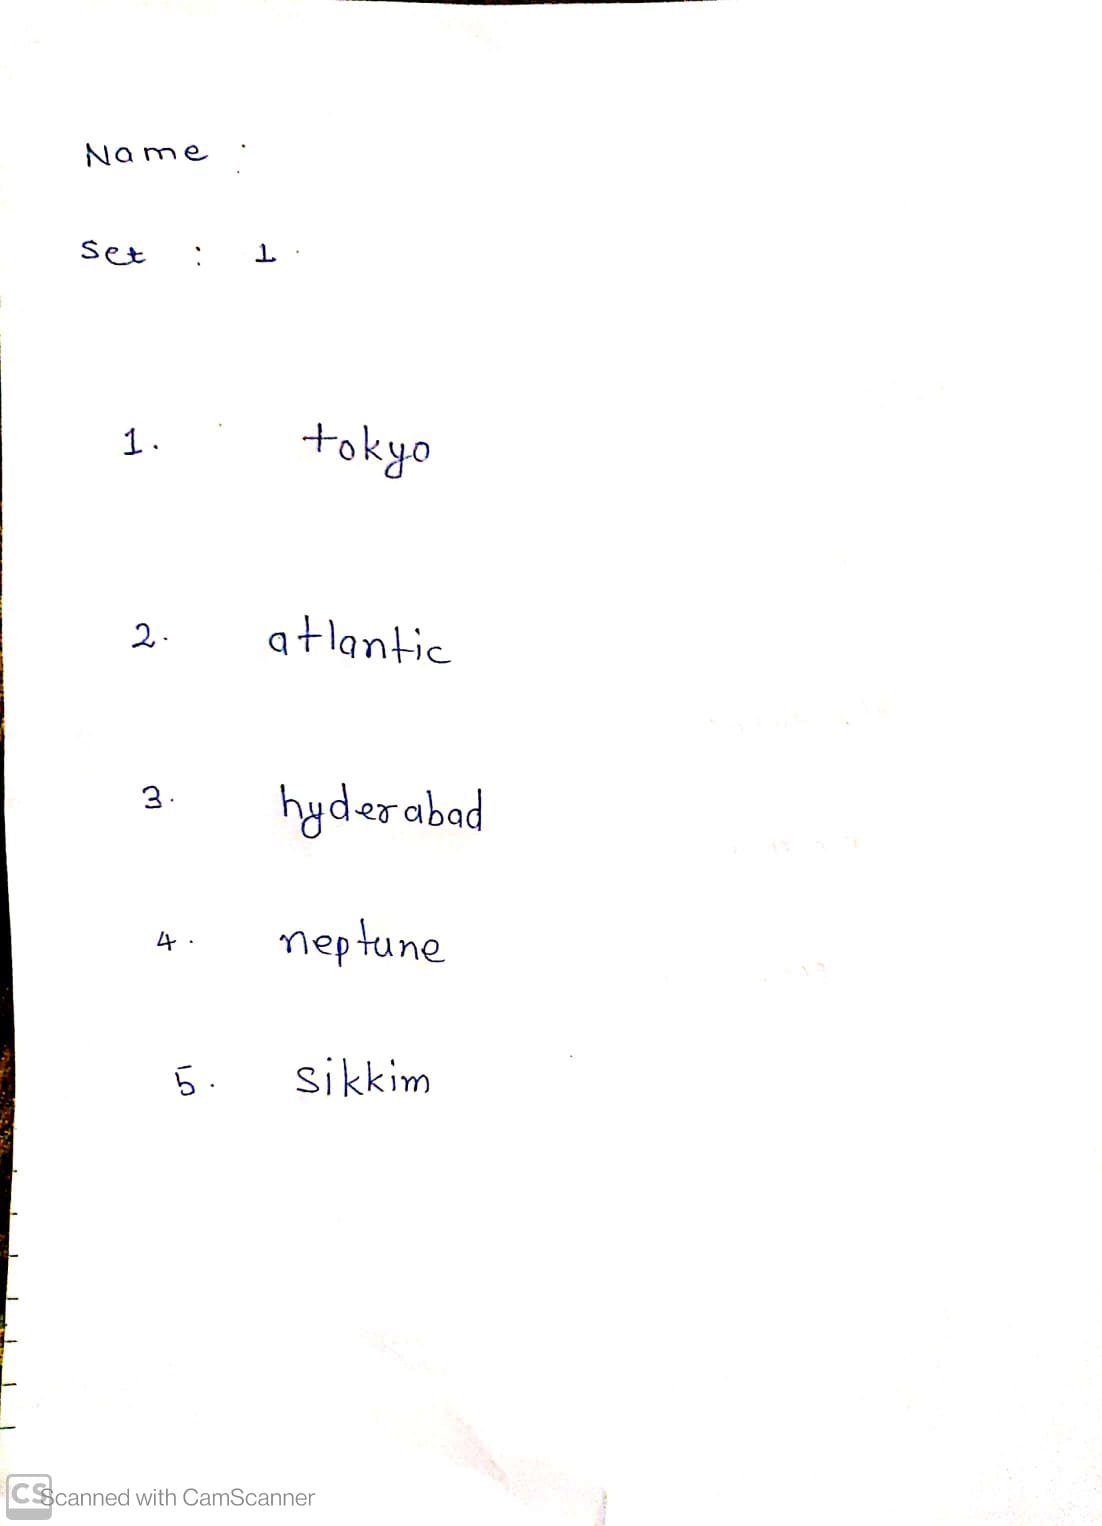 Name :
Set : 1.
1. tokyo
2. atlantic
3. hyderabad
4. neptune
5. sikkim
CS Scanned with CamScanner